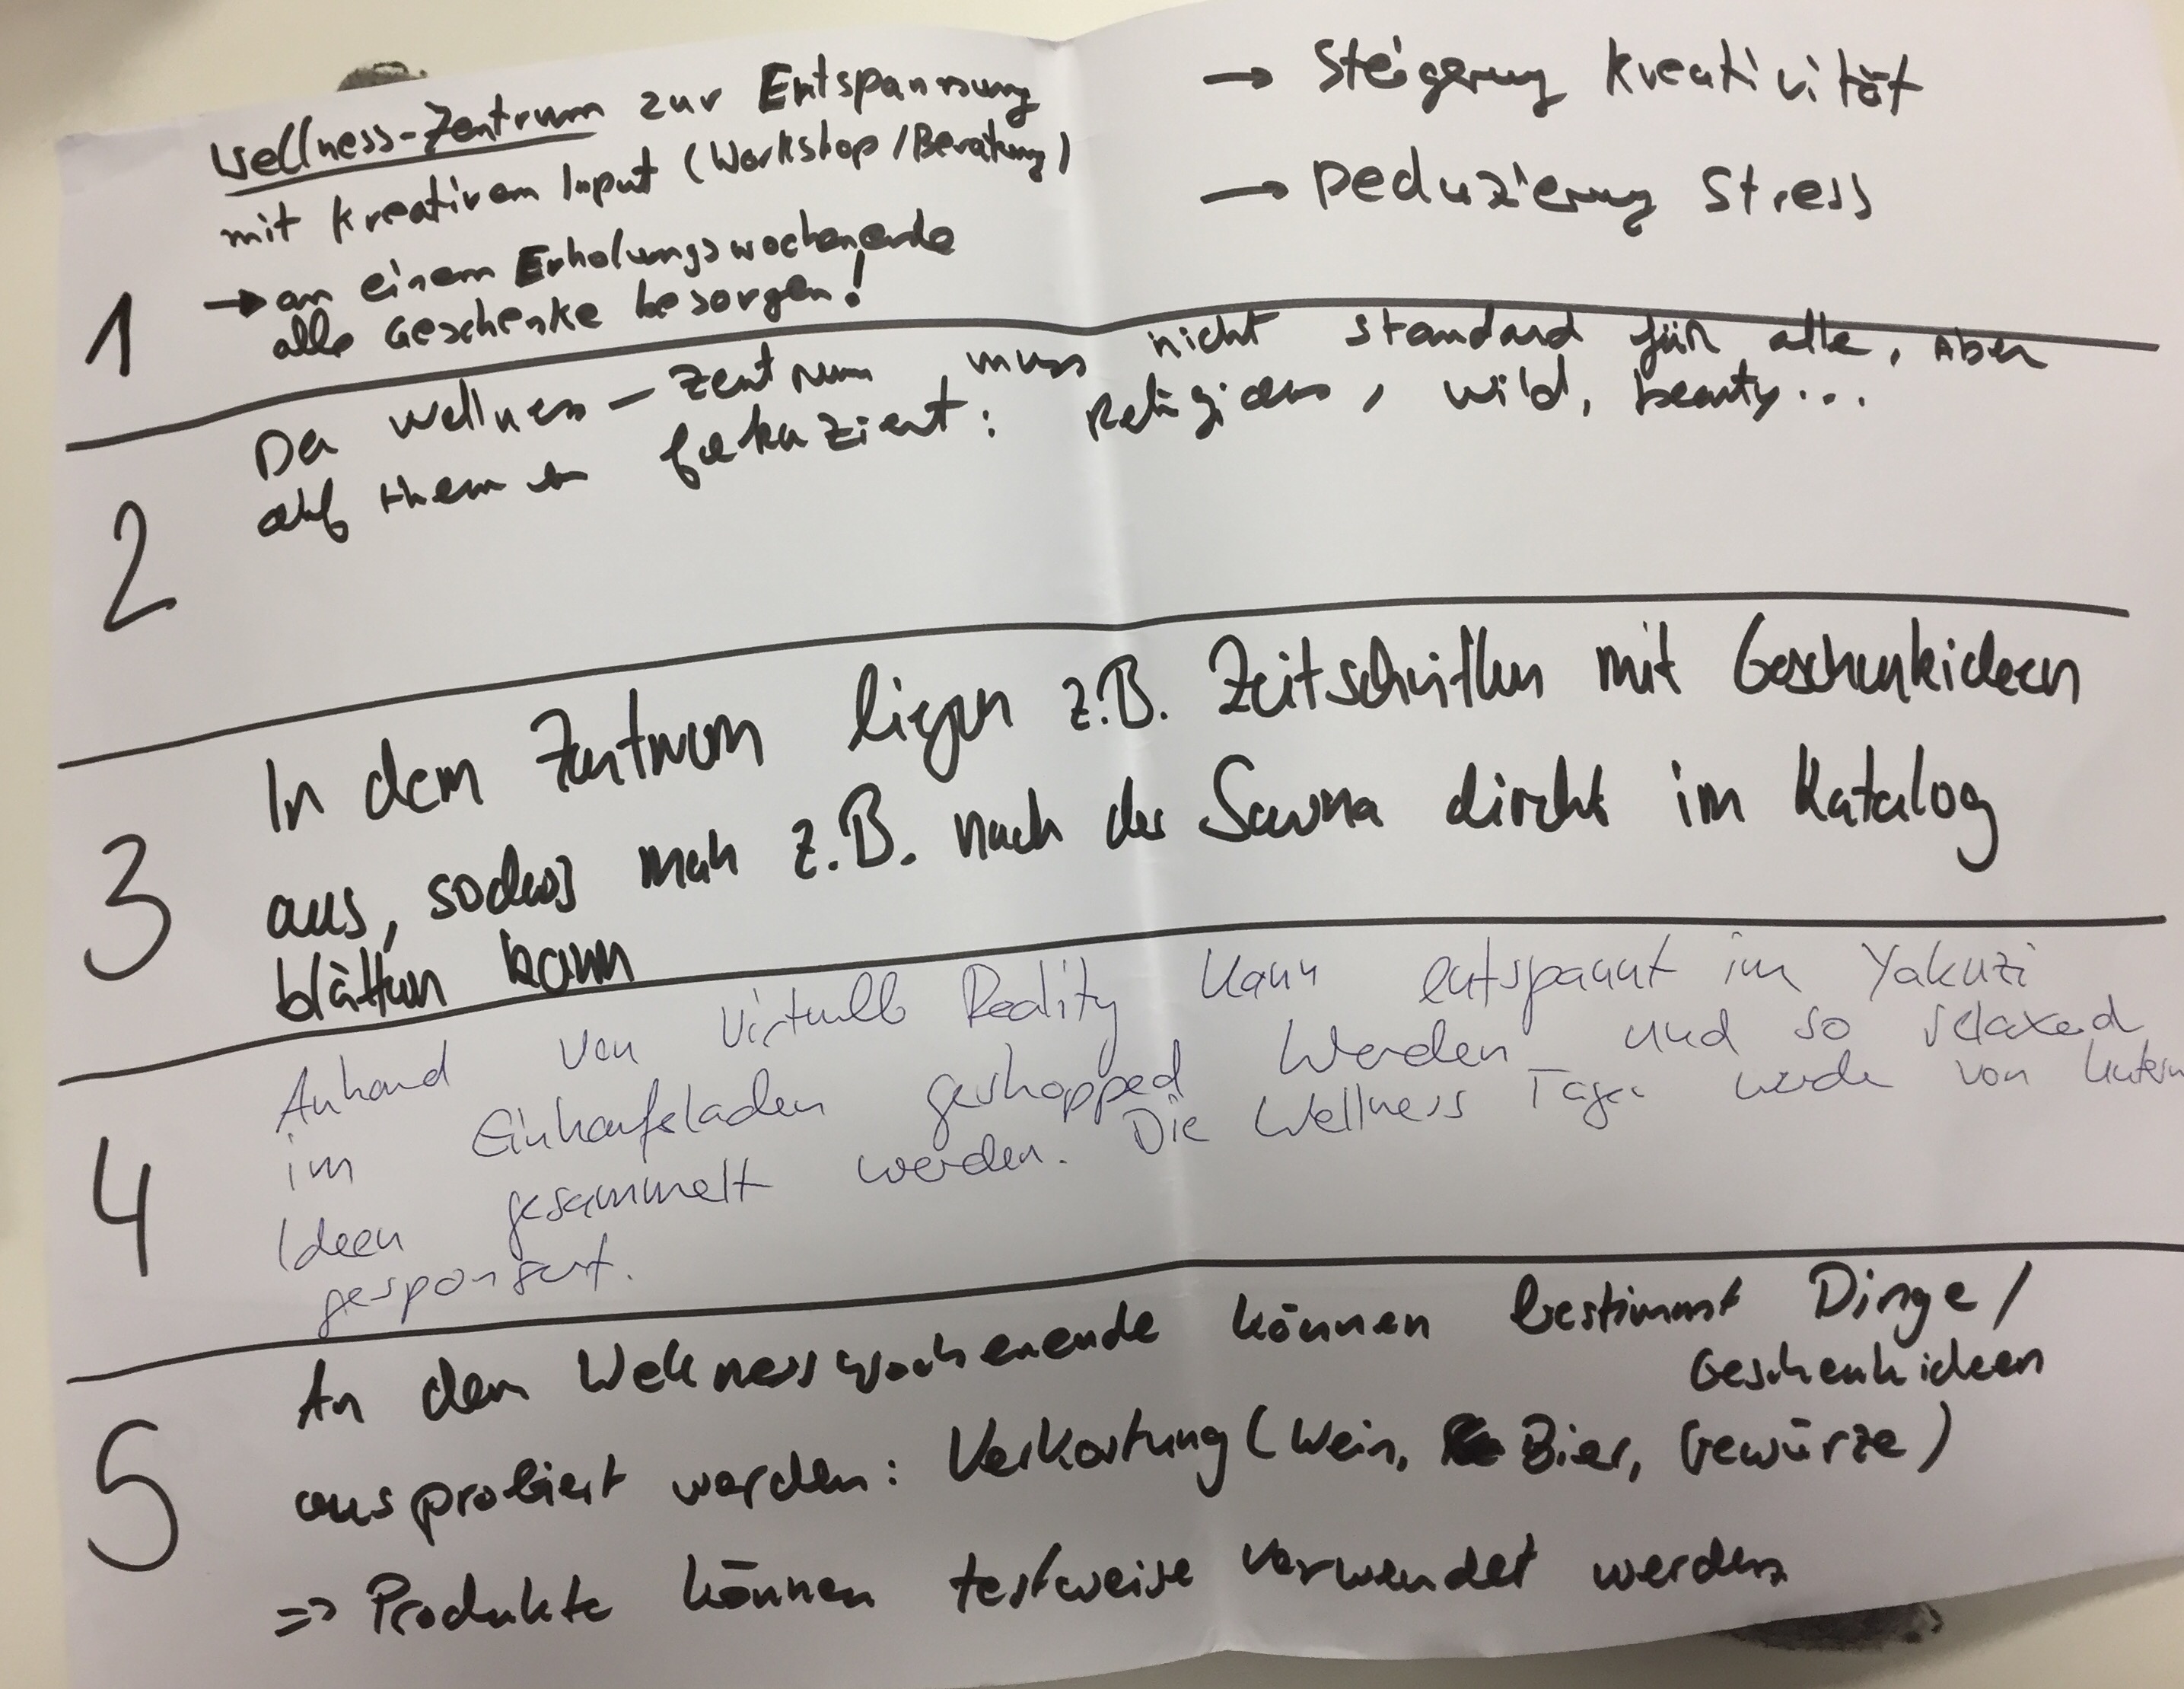 Wellness-Zentrum zur Entspannung
mit kreativem Input (Workshop/Beratung)
→ an einem Erholungswochenende
alle Geschenke besorgen!
→ Steigerung Kreativität
→ Reduzierung Stress
1
Da Wellness-Zentrum muss nicht standard für alle, aber
auf themen fokuziert: Religiös, wild, beauty...
2
In dem Zentrum liegen z.B. Zeitschriften mit Geschenkideen
aus, sodass man z.B. nach der Sauna direkt im Katalog
blättern kann
3
Anhand von Virtuell Reality kann entspannt im Yakuzi
im Einkaufsladen geshopped werden und so relaxed
Ideen gesammelt werden. Die Wellness Tage werde von
gesponsert.
4
An dem Wellnesswochenende können bestimmt Dinge/
Geschenkideen
ausprobiert werden: Verkostung (Wein, Bier, Gewürze)
=> Produkte können testweise verwendet werden
5